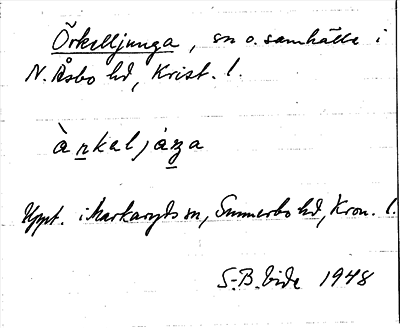 Örkelljunga, sn o. samhälle i
N. Åsbo hd, Krist. l.
Uppt. i Markaryds sn, Sunnerbo hd, Kron. l.
S.-B. Vide 1948